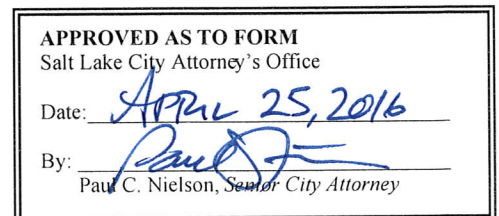 APPROVED AS TO FORM
Salt Lake City Attorney's Office
Date: APRIL 25, 2016
By:
Paul C. Nielson, Senior City Attorney